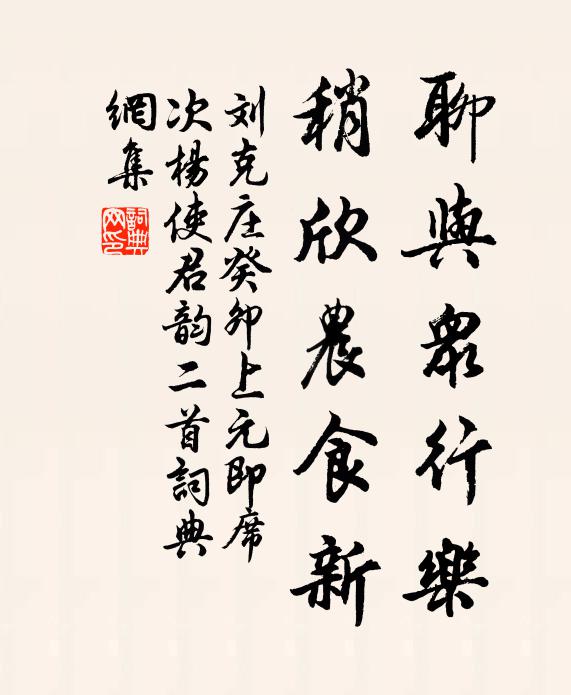 聊與眾行樂
稍欣農食新
刘克庄癸卯上元即席
次楊使君韵二首詞典
網集
詞典网印